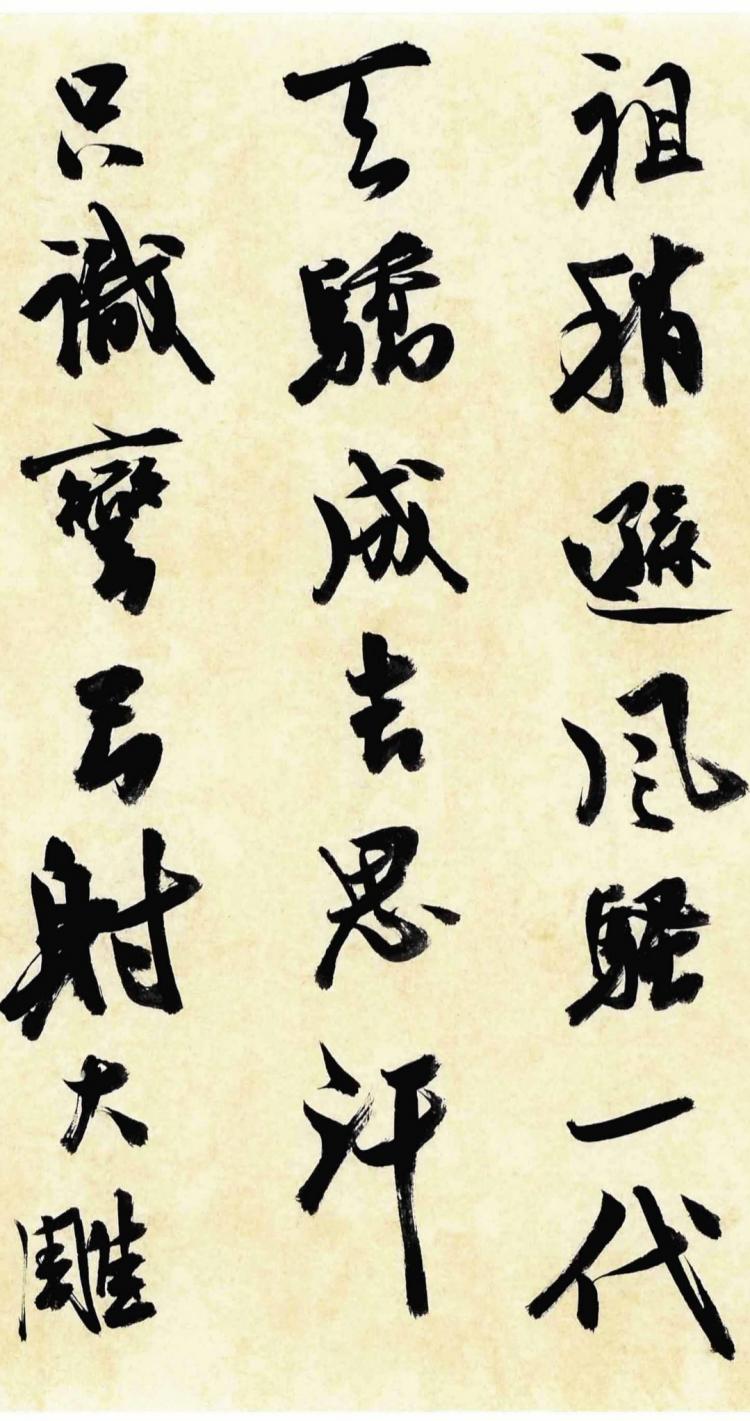 祖稍遜风騷一代
天驕成吉思汗
只識彎弓射大雕